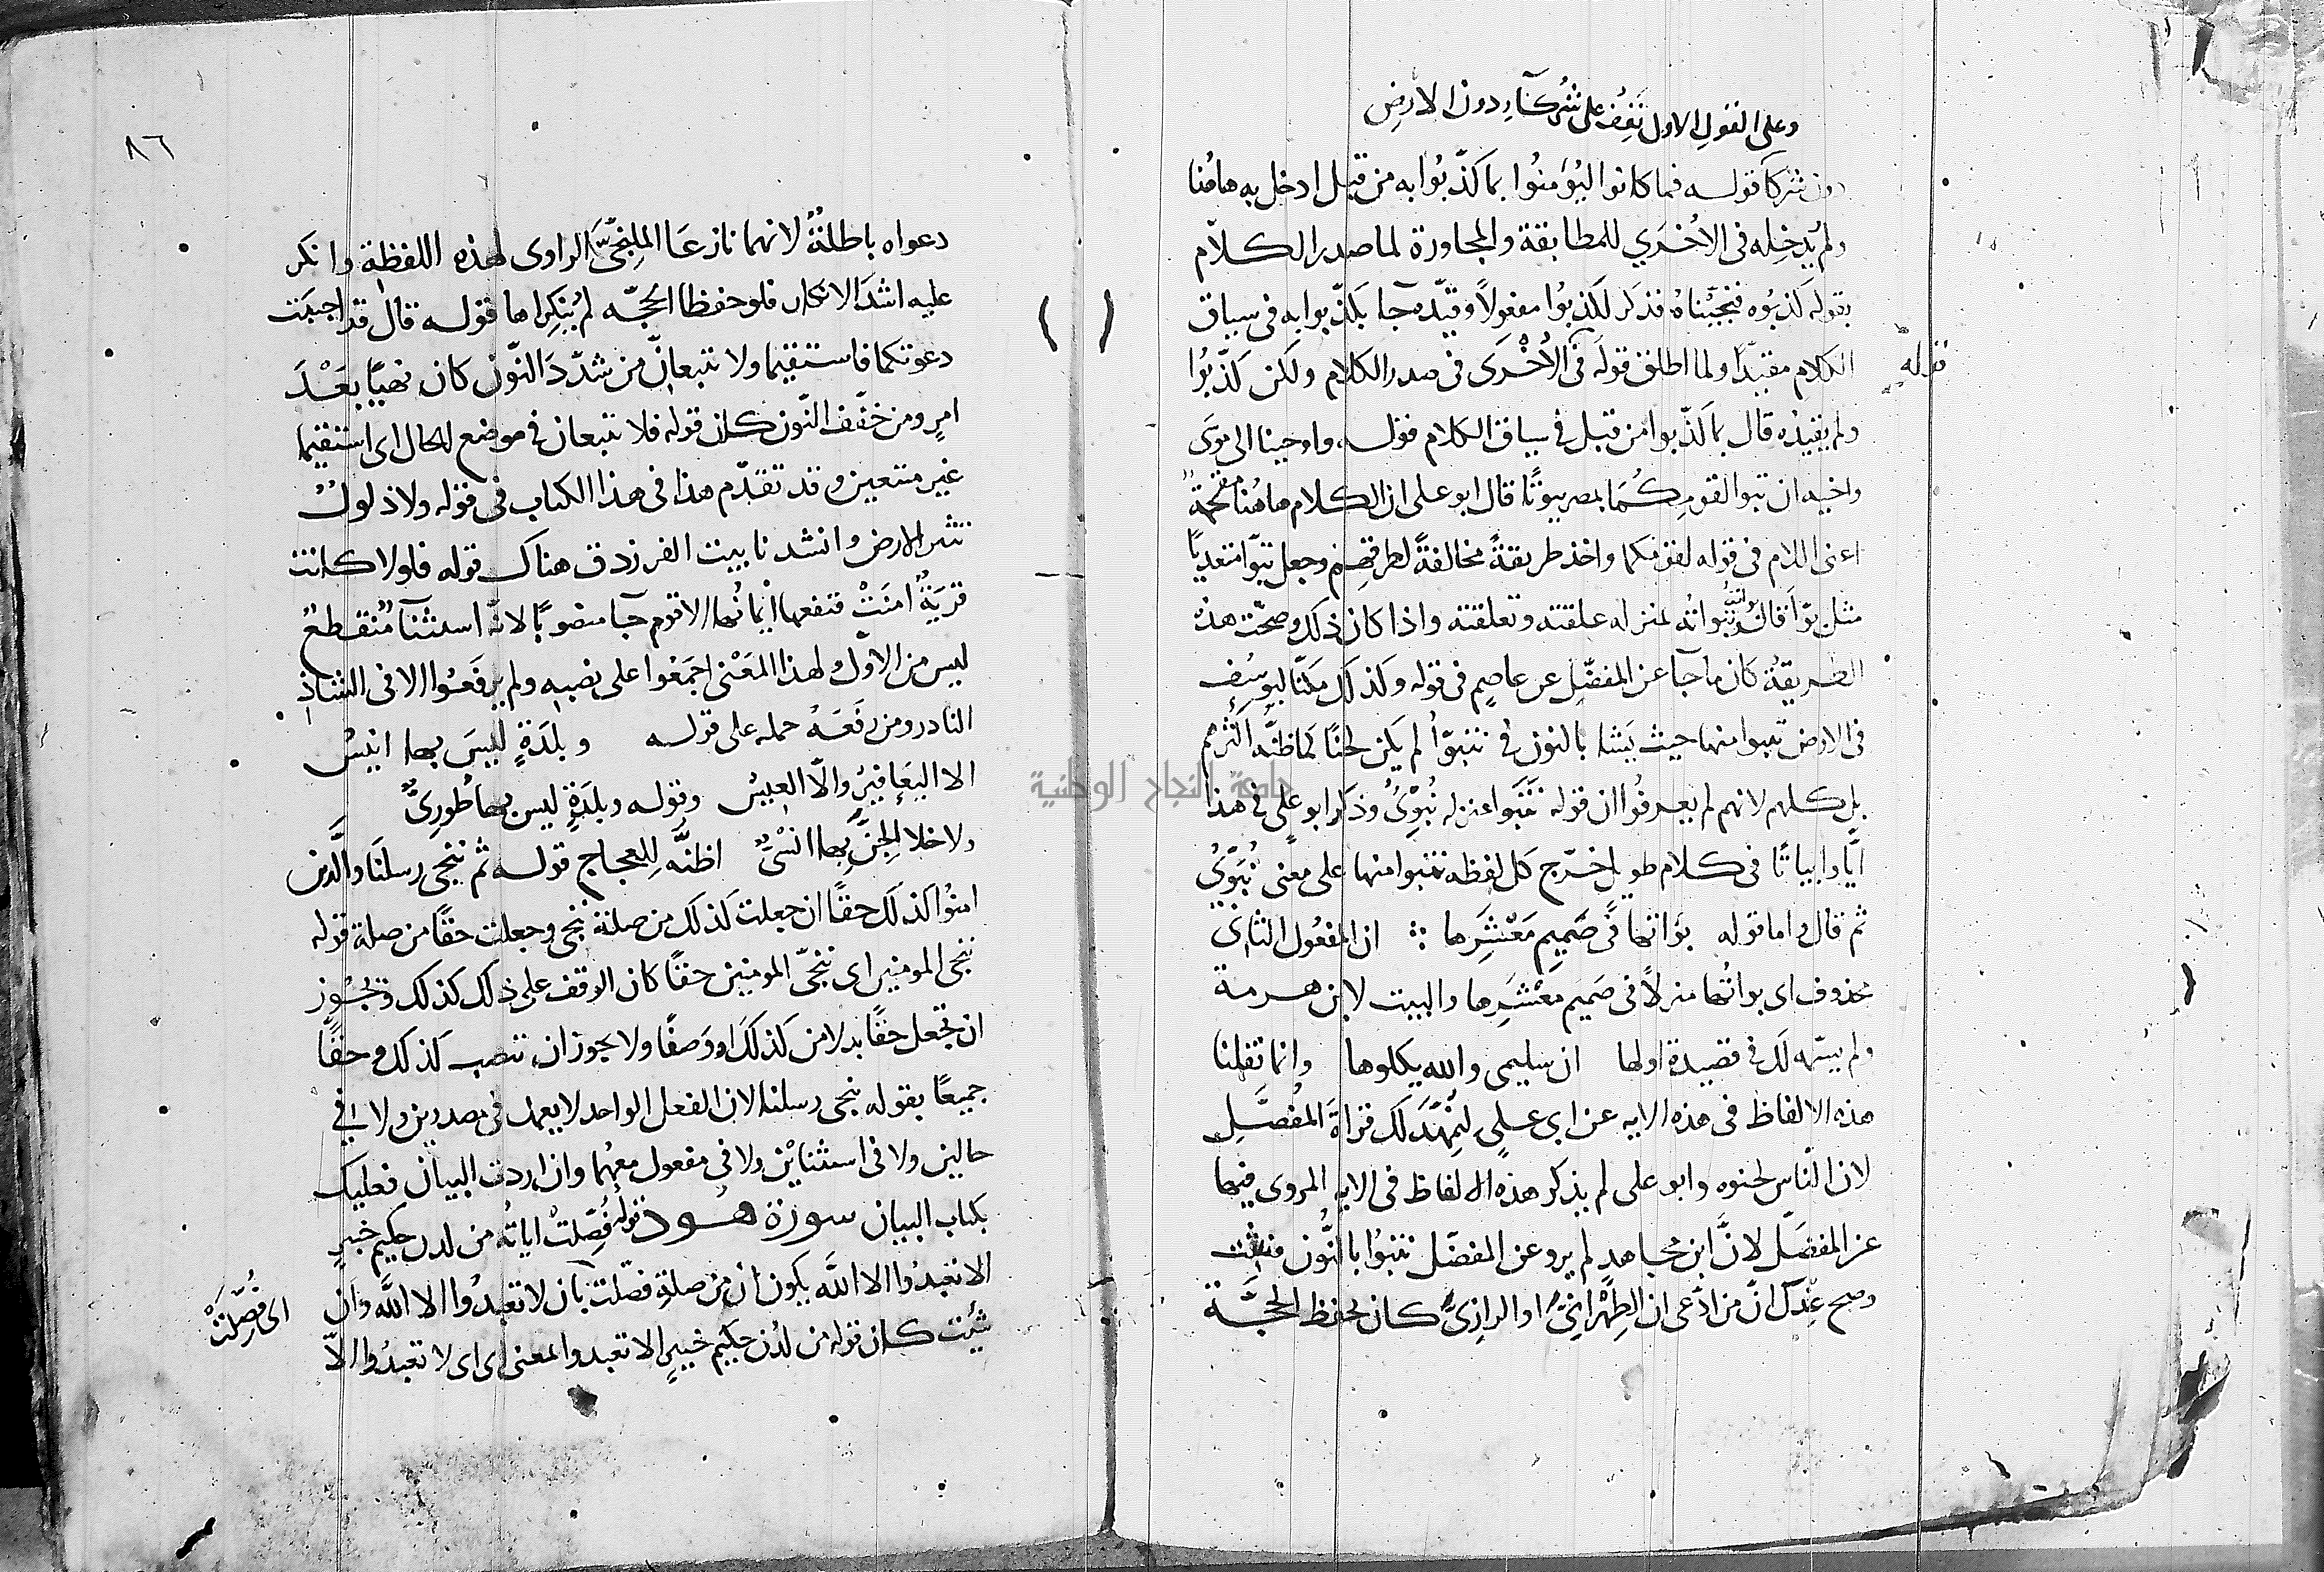 وعلى القول الاول تقف على شركآء دون الارض
دون شركا قوله فما كانوا ليؤمنوا بما كذبوا به من قبل ادخل به هاهنا
ولم يدخله في الأخرى للمطابقة والمجاورة لما صدر الكلام
بقوله كذبوه فنجيناه فذكر لكذبوا مفعولا وقيده جا بكذبوا به في سياق
الكلام مقيدا ولما اطلق قوله في الأخرى في صدر الكلام ولكن كذبوا
قوله
ولم يقيده قال بما كذبوا من قبل في سياق الكلام قوله واوحينا الى موسى
واخيه ان تبوا لقومكما بمصر بيوتا قال ابو علي ان الكلام هاهنا مقحمة
اعنى اللام في قوله لقومكما واخذ طريقة مخالفة لطرقهم وجعل تبوا متعديا
مثل بوا فقال بوات وتبواته بمنزله علقته وتعلقته واذا كان ذلك وصحت هذه
الطريقة كان ما جآ عن المفضل عن عاصم في قوله وكذلك مكنا ليوسف
في الارض نتبوا منها حيث يشا بالنون في نتبوا لم يكن لحنا كما ظنه اكثرهم
بل كلهم لانهم لم يعرفوا ان قوله نتبوا بمنزله نبوئ وذكر ابو علي في هذا
آيا وابياتا في كلام طويل خرج كل لفظه نتبوا منها على معنى نبوئ
ثم قال واما قوله بوأتها في صميم معشرها ان المفعول الثاني
محذوف اى بواتها منزلا في صميم معشرها والبيت لابن هرمة
ولم يسمه لك في قصيدة اولها ان سليمى والله يكلوها وانما نقلنا
هذه الالفاظ في هذه الايه عن ابي علي ليمهد لك قراة المفضل
لان الناس لحنوه وابو على لم يذكر هذه الالفاظ في الايه المروى فيها
عن المفضل لان ابن مجاهد لم يرو عن المفضل نتبوا بالنون فثبت
وصح عندك ان من ادعى ان الطهراني او الرازي كان يحفظ الحجة
٨٦
دعواه باطلة لانهما نازعا الملنجي الراوى لهذه اللفظة وانكر
عليه اشد الانكار فلو حفظا الحجه لم ينكراها قوله قال قد اجيبت
دعوتكما فاستقيما ولا تتبعان من شدد النون كان نهيا بعد
امر ومن خفف النون كان قوله فلا تتبعان في موضع الحال اى استقيما
غير متبعين وقد تقدم هذا في هذا الكتاب في قوله ولا ذلول
تثير الارض وانشدنا بيت الفرزدق هناك قوله فلولا كانت
قرية امنت فنفعها ايمانها الا قوم جآ منصوبا لانه استثنآ منقطع
ليس من الاول ولهذا المعنى اجمعوا على نصبه ولم يرفعوا الا في الشاذ
النادر ومن رفعه حمله على قوله وبلدة ليس بها انيس
الا اليعافير والا العيس وقوله وبلدة ليس بها طورى
ولا خلا الجن بها انسى اظنه للعجاج قوله ثم ننجى رسلنا والذين
امنوا كذلك حقا ان جعلت كذلك من صلة ننجى وجعلت حقا من صلة قوله
ننجى المومنين اى ننجى المومنين حقا كان الوقف على ذلك كذلك ويجوز
ان تجعل حقا بدلا من كذلك او وصفا ولا يجوز ان تنصب كذلك وحقا
جميعا بقوله ننجى رسلنا لان الفعل الواحد لا يعمل في مصدرين ولا في
حالين ولا في استثنائين ولا في مفعول معهما وان اردت البيان فعليك
بكتاب البيان سورة هود قوله فصلت اياته من لدن حكيم خبير
الا تعبدوا الا الله يكون ان من صلة فصلت بان لا تعبدوا الا الله وان
اى فصلت
شئت كان قوله من لدن حكيم خبير الا تعبدوا المعنى اى اى لا تعبدوا الا
جامعة النجاح الوطنية